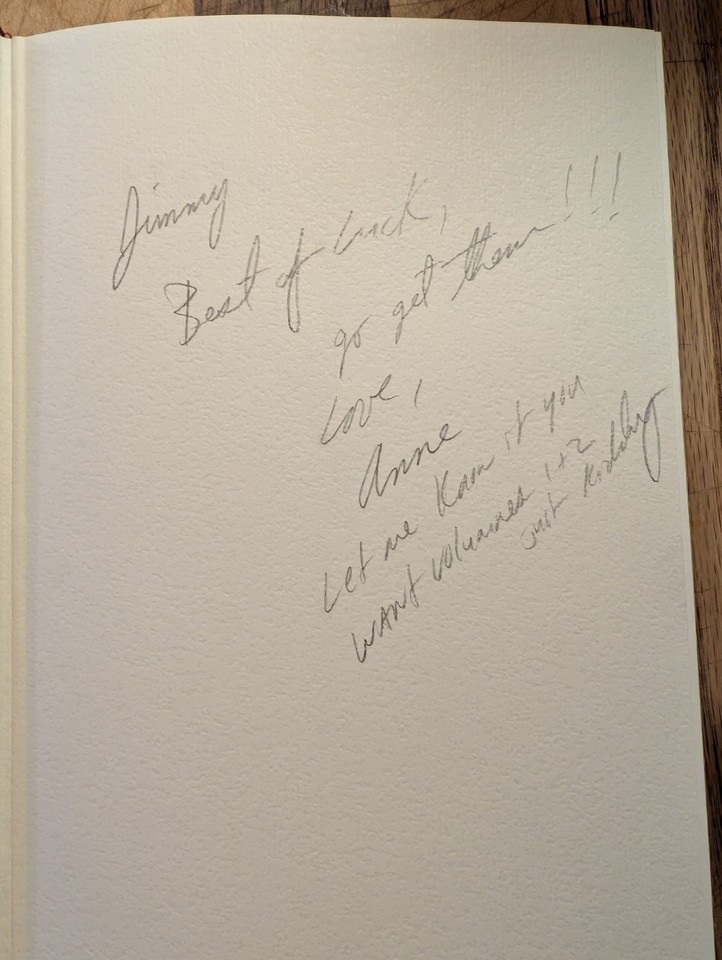 Jimmy
Best of Luck,
go get them!!!
Love,
Anne
Let me Know if you
WANT Volumnes 1+2
Just Kidding